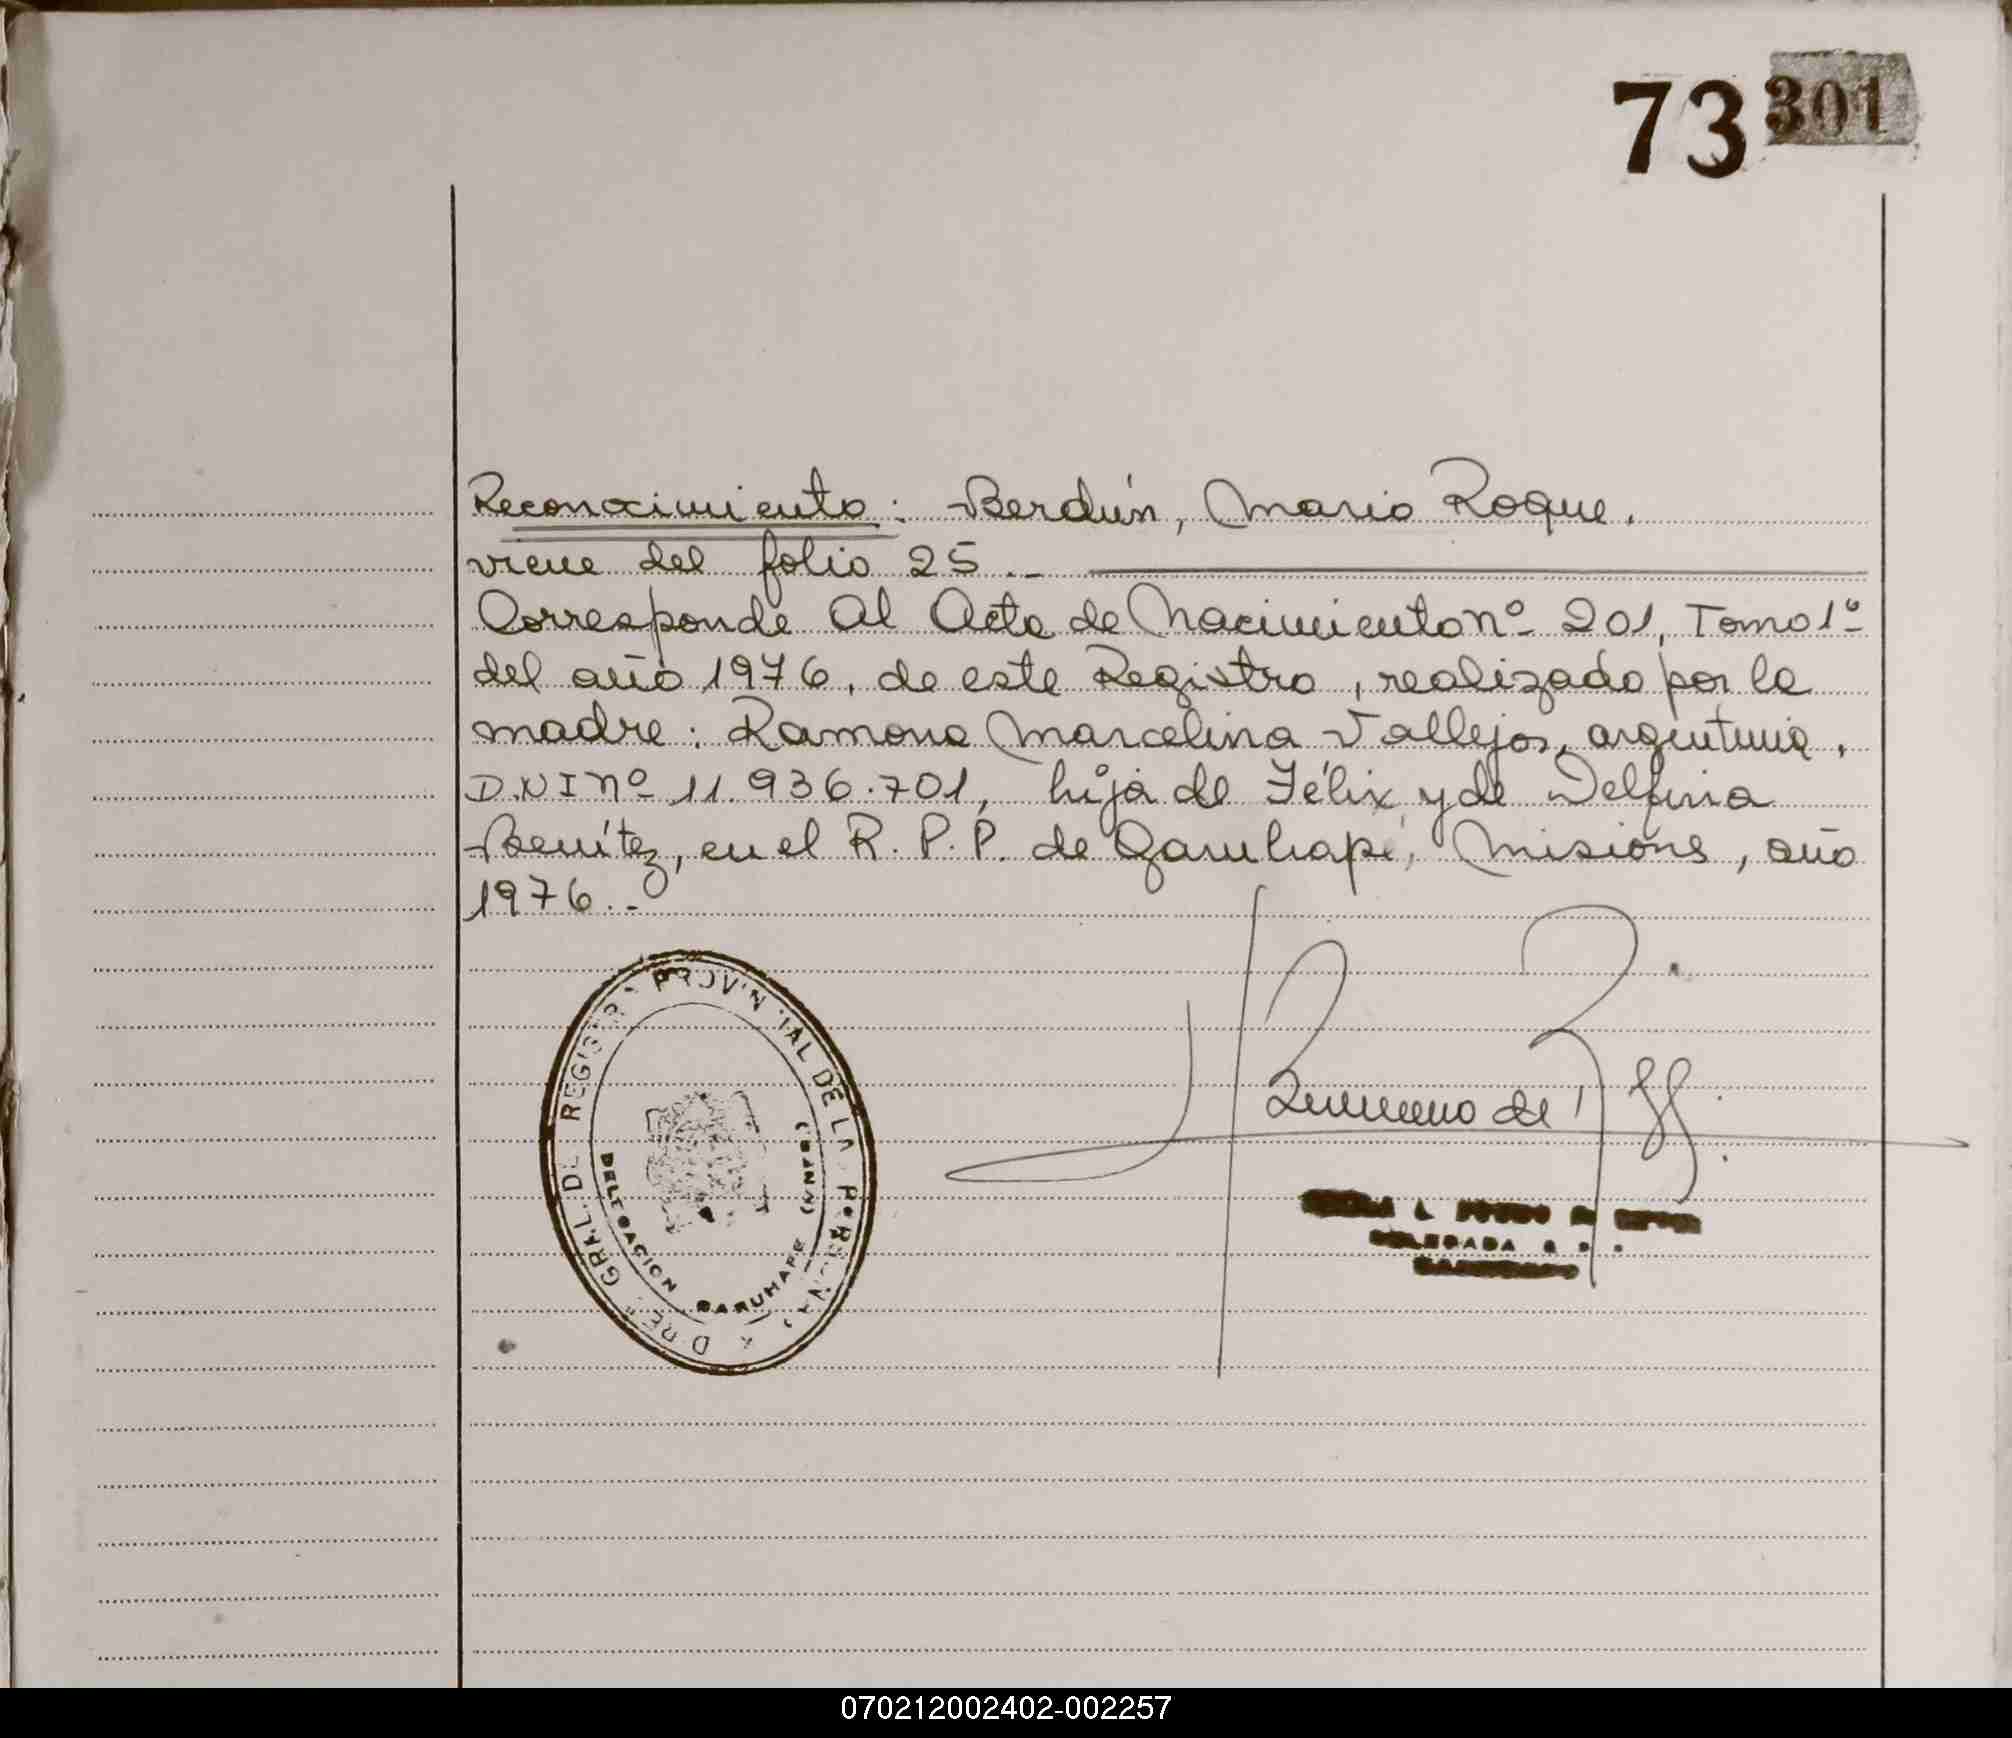 73 301
Reconocimiento: Berdún, Mario Roque.
viene del folio 25.-
Corresponde al Acta de Nacimiento nº 201, Tomo 1º
del año 1976, de este Registro, realizado por la
madre: Ramona Marcelina Vallejos, argentina,
D.N.I nº 11.936.701, hija de Félix y de Delfina
Benítez, en el R.P.P. de Garuhapé, Misiones, año
1976.-
GRAL. DE REGISTRO PROVINCIAL DE LA PERSONAS
DELEGACION GARUHAPE
DELEGADA
070212002402-002257